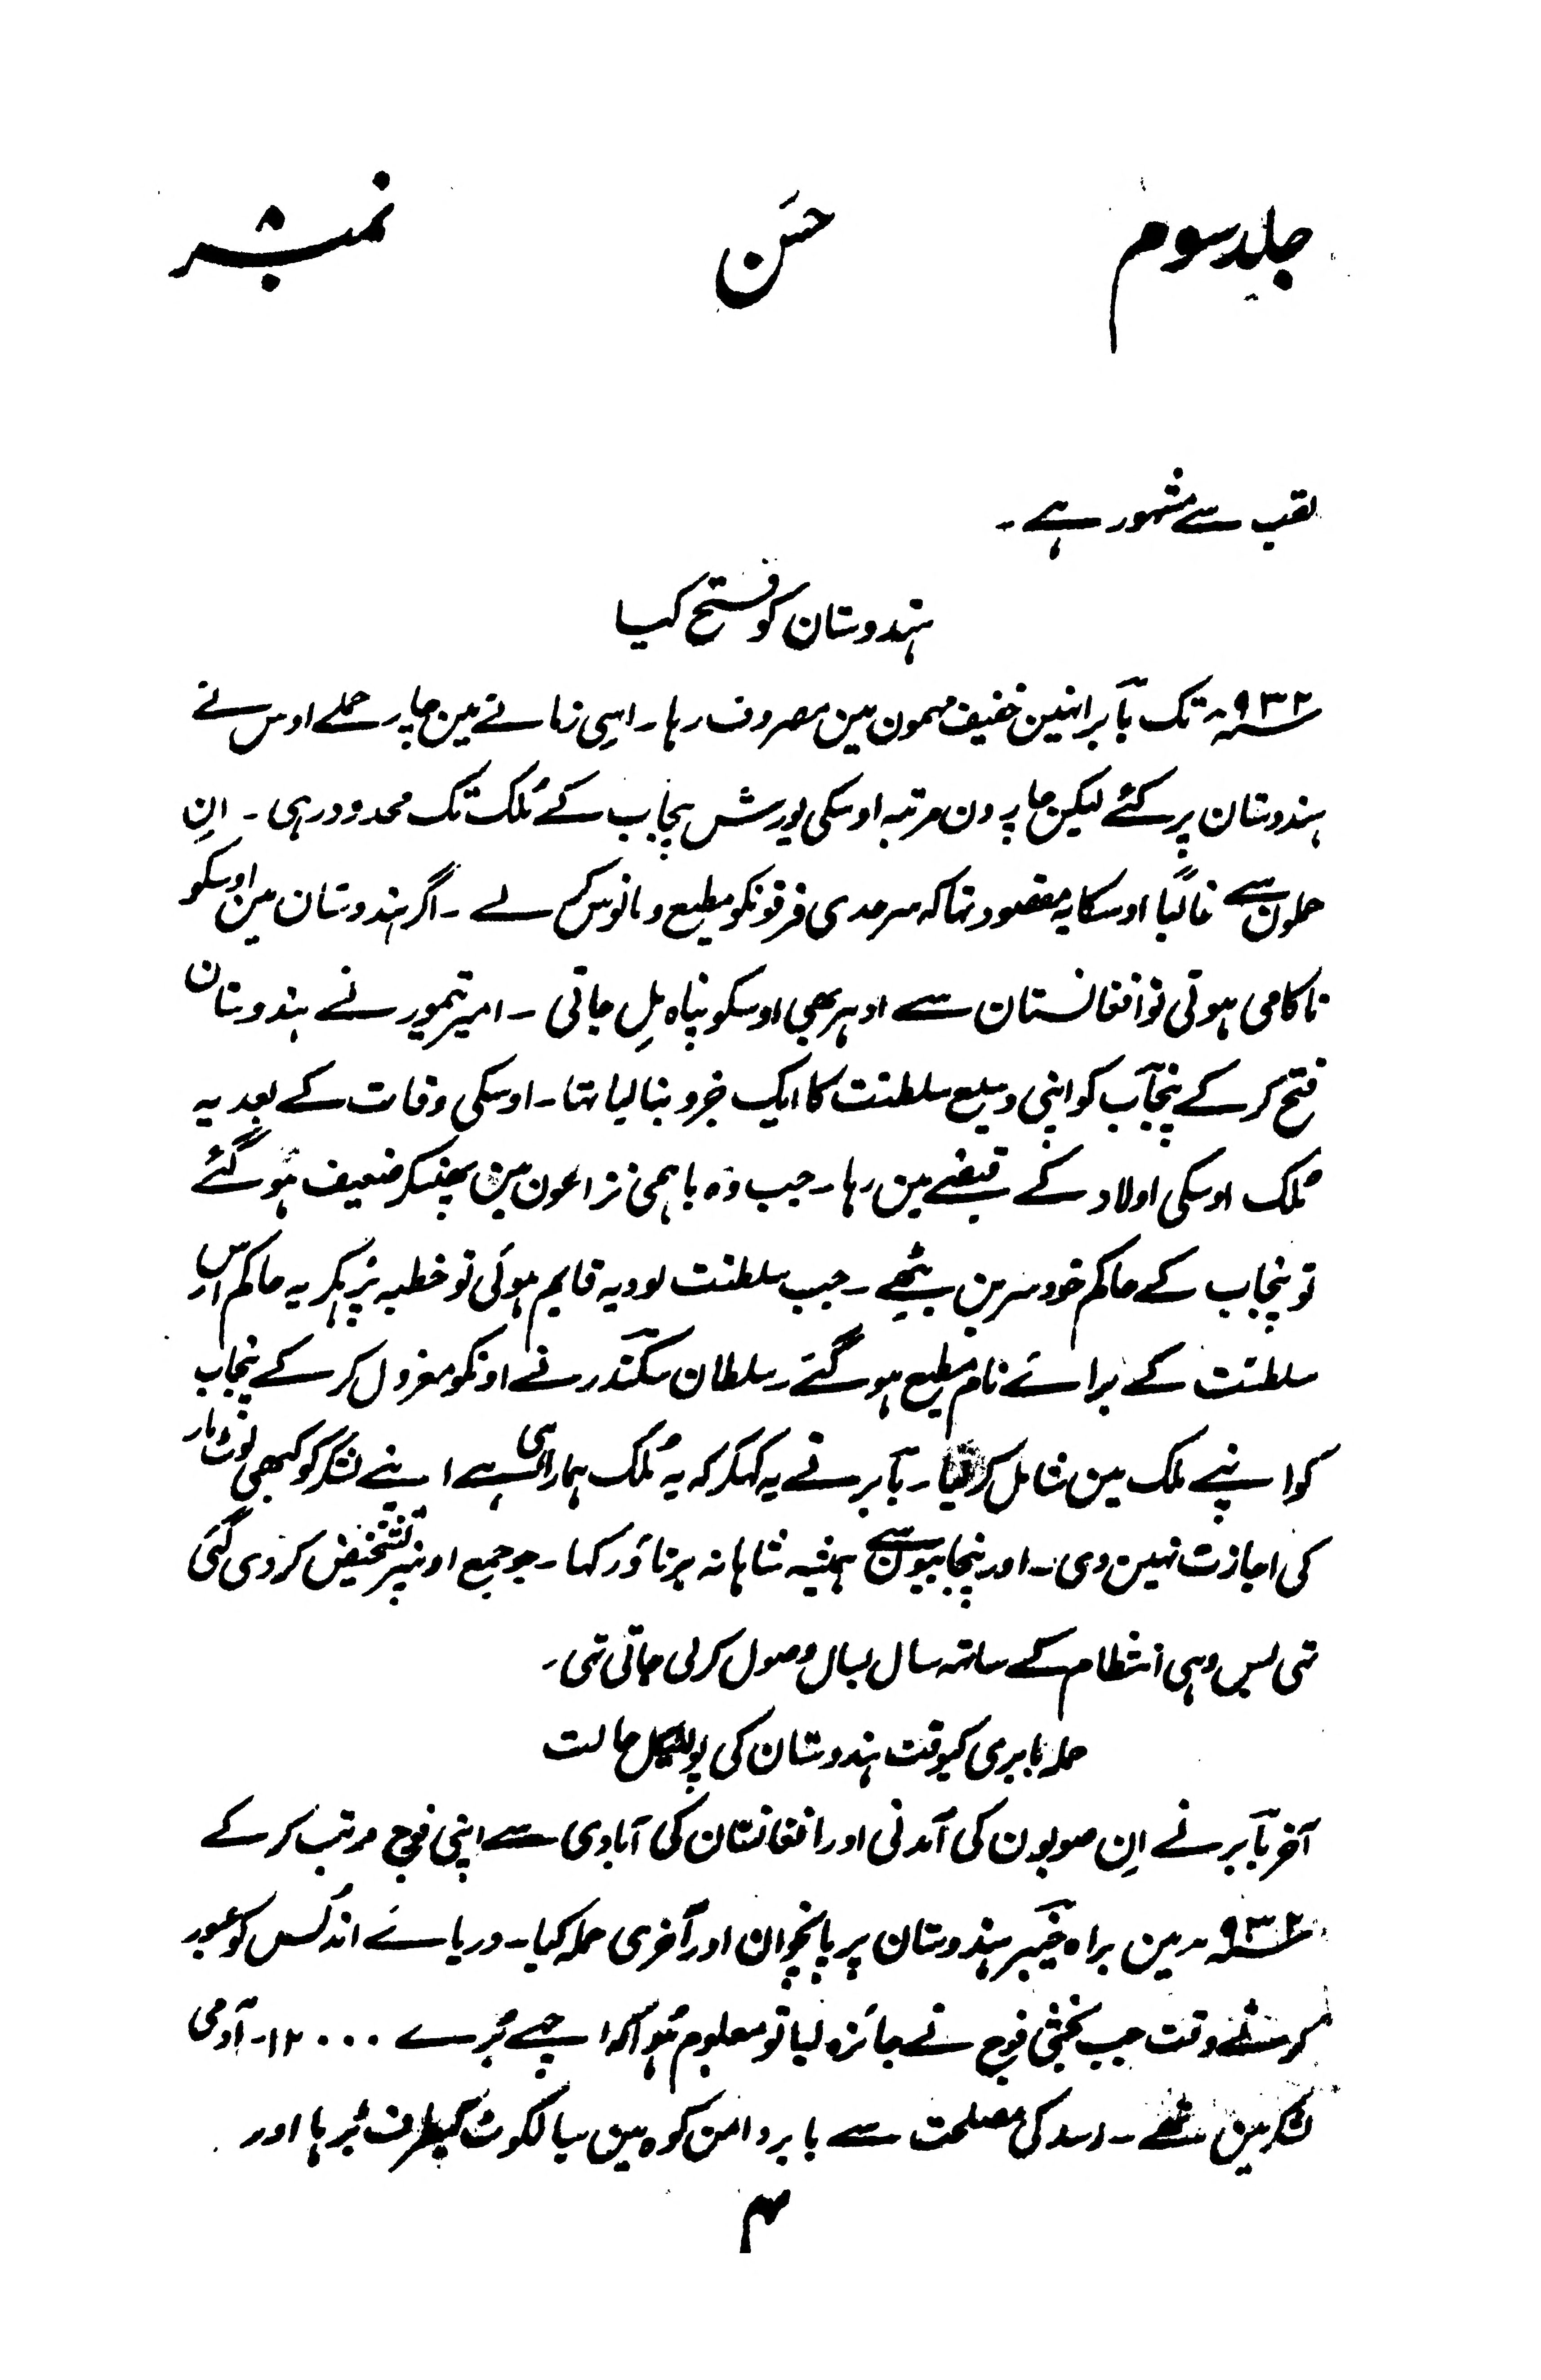 جلد سوم
حسن
نمبر ۸
لقب سے مشہور ہے ۔
ہندوستان کو فتح کیا
سنہ ۹۳۲ تک بابر انہین خفیف مہمون مین مصروف رہا ۔ اسی زمانے مین چار حملے اوس نے
ہندوستان پر کئے لیکن چارون مرتبہ اوسکی یورش پنجاب کے مُلک تک محدود رہی ۔ اِن
حملون سے غالبًا اوسکا یہ مقصود تہا کہ سرحدی فرقونکو مطیع و مانوس کر لے ۔ اگر ہندوستان مین اوسکو
ناکامی ہوتی تو افغانستان سے ادہر بھی اوسکو پناہ مِل جاتی ۔ امیر تیمور نے ہندوستان
فتح کر کے پنجاب کو اپنی وسیع سلطنت کا ایک جزو بنا لیا تہا ۔ اوسکی وفات کے بعد یہ
مُلک اوسکی اولاد کے قبضے مین رہا ۔ جب وہ باہمی نزاعون مین پھنسکر ضعیف ہو گئے
تو پنجاب کے حاکم خود سر بن بیٹھے ۔ جب سلطنت لودیہ قایم ہوئی تو خطبہ پڑہکر یہ حاکم اوس
سلطنت کے برائے نام مطیع ہو گئے ۔ سلطان سکندر نے اونکو معزول کر کے پنجاب
کو اپنے ملک مین شامل کر لیا ۔ بابر نے یہ کہکر کہ یہ مُلک ہمارا ہی ہے اپنے لشکر کو کبھی لوٹ مار
کی اجازت نہین دی ۔ اور پنجابیون سے ہمیشہ شاہانہ برتاؤ رکہا ۔ جو جمع اونپر تشخیص کر دی گئی
تہی بس وہی انتظام کے ساتہہ سال بسال وصول کر لی جاتی تہی ۔
حملہ بابری کیوقت ہندوستان کی پولٹیکل حالت
آخر بابر نے اِن صوبون کی آمدنی اور افغانستان کی آبادی سے اپنی فوج مرتب کر کے
سنہ ۹۳۲ مین براہ خیبر ہندوستان پر پانچوان اور آخری حملہ کیا ۔ دریائے انڈکس کو عبور
کرتے وقت جب بخشی فوج نے جائزہ لیا تو معلوم ہُوا کہ اچھے بُرے ۱۲۰۰۰ ۔ آدمی
لشکر مین تھے ۔ رسد کی مصلحت سے بابر دامن کوہ مین سیالکوٹ کیطرف بڑہا اور
۴